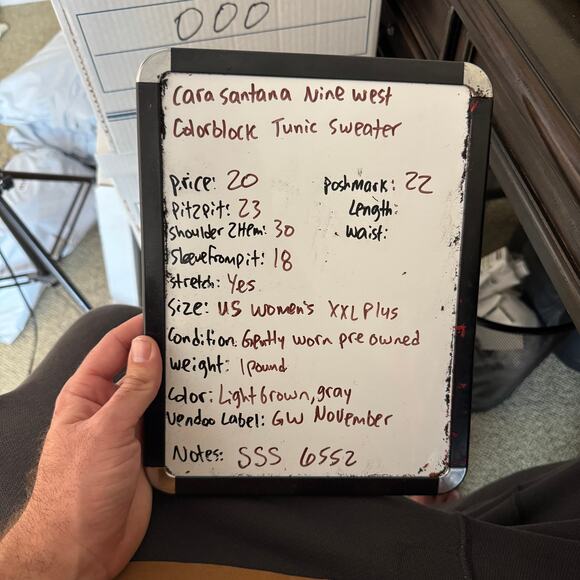 000
Cara Santana Nine West
Colorblock Tunic Sweater
price: 20 poshmark: 22
pit2pit: 23 Length:
shoulder 2Hem: 30 Waist:
Sleevefrompit: 18
stretch: Yes
Size: US Women's XXL Plus
Condition: Gently worn pre owned
Weight: 1 pound
Color: Light brown, gray
Vendoo Label: GW November
Notes: SSS 6552